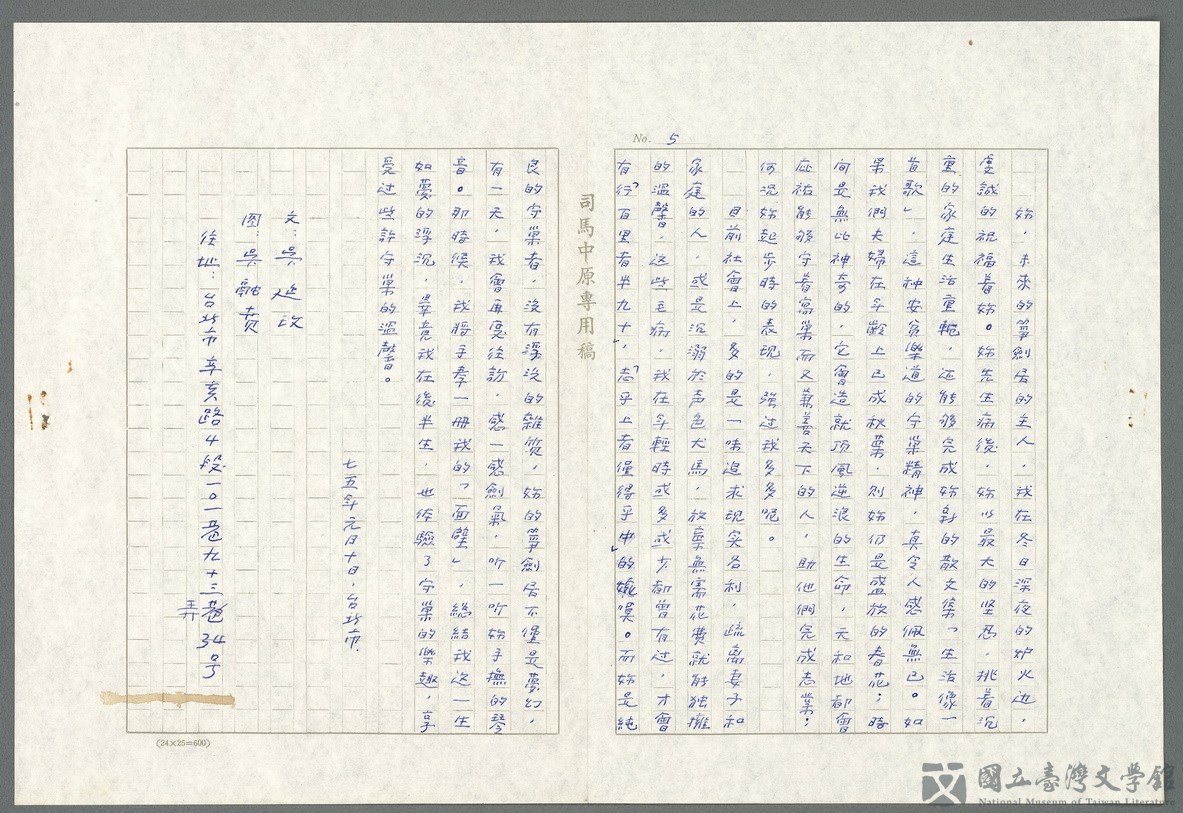 No. 5
妳，未來的箏劍居的主人，我在冬日深夜的炉火边，
虔誠的祝福着妳。妳先生病後，妳以最大的坚忍，挑着沉
重的家庭生活重軛，还能够完成妳的散文集「生活像一
首歌」，這种安貧樂道的守巢精神，真令人感佩無已。如
果我們夫婦在年齡上已成秋葉，則妳仍是盛放的春花；時
间是無比神奇的，它會造就顶風逆浪的生命，天和地都會
庇祐能够守着窩巢而又兼善天下的人，助他們完成志業；
何况妳起步時的表现，强过我多多呢。
目前社會上，多的是一味追求现实名利，疏离妻子和
家庭的人，或是沉溺於声色犬馬，放棄無需花費就能独擁
的溫馨，这些毛病，我在年輕時或多或少都曾有过，才會
有「行百里者半九十」，「志乎上者僅得乎中」的嘆。而妳是純
司馬中原專用稿
良的守巢者，沒有浮沒的雜質，妳的箏劍居不僅是夢幻，
有一天，我會再度往訪，感一感劍氣，听一听妳手撫的琴
音。那時候，我將手奉一册我的「面壁」，総結我这一生
如夢的浮沉，畢竟我在後半生，也体驗了守巢的樂趣，享
受过些許守巢的溫馨。
七五年元月十日，台北市
文：吳延玫
图：吳融賁
住址：台北市辛亥路4段一〇一巷九十三弄34号
(24×25=600)
國立臺灣文學館
National Museum of Taiwan Literature